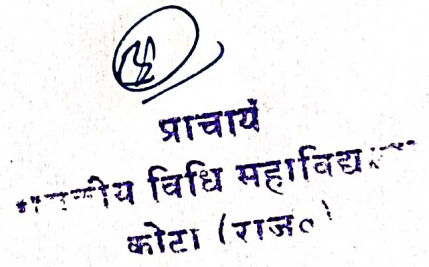 प्राचार्य
विधि महाविद्य
कोटा (राज०)